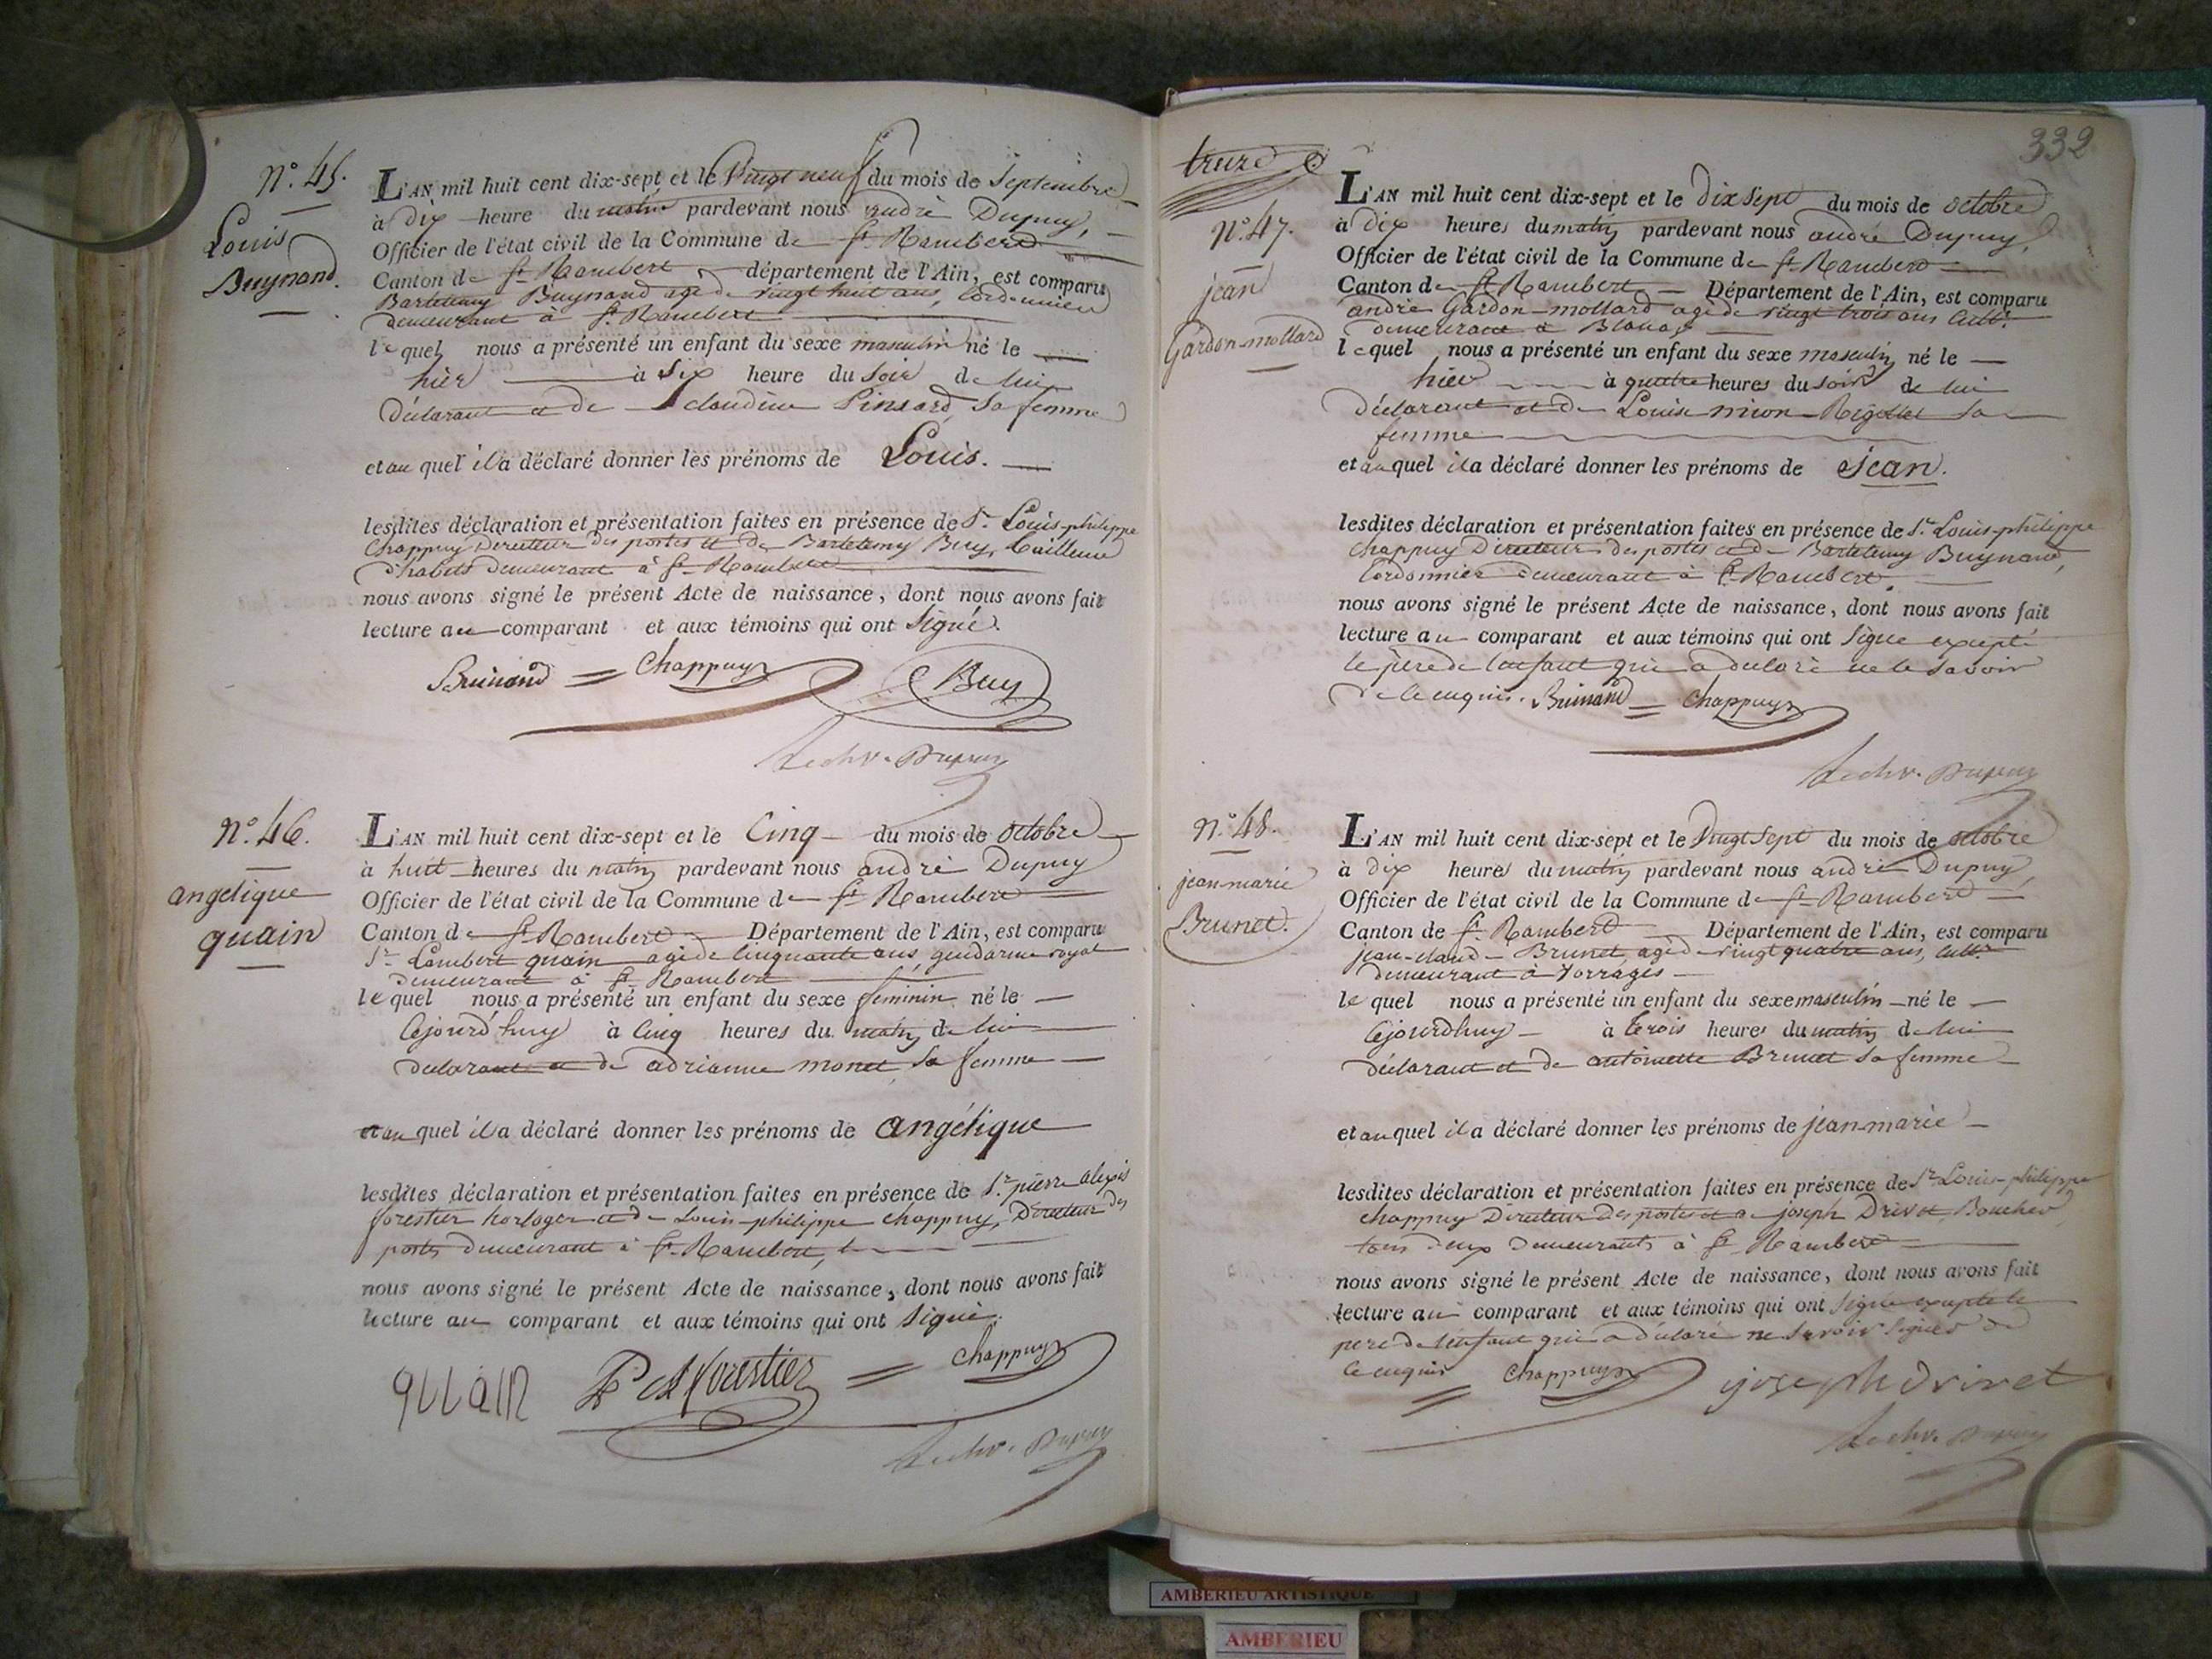 N.° 45.
Louis
Buynand.
L'AN mil huit cent dix-sept et le Vingt neuf du mois de Septembre
à dix heure du matin pardevant nous andré Dupuy,
Officier de l'état civil de la Commune de St Rambert
Canton de St Rambert département de l'Ain, est comparu
Bartelemy Buynand agé de vingt huit ans, Cordonnier
demeurant à St Rambert
lequel nous a présenté un enfant du sexe masculin né le
hier à six heure du soir de lui
déclarant et de claudine Pinsard sa femme
et au quel il a déclaré donner les prénoms de Louis.
lesdites déclaration et présentation faites en présence de Sr Louis-philippe
Chappuy Directeur des postes et de Bartelemy Buy, tailleur
d'habits demeurant à St Rambert
nous avons signé le présent Acte de naissance, dont nous avons fait
lecture au comparant et aux témoins qui ont signé.
Buinand = Chappuy Buy
Dupuy
N.° 46.
angelique
quain
L'AN mil huit cent dix-sept et le Cinq du mois de octobre
à huit heures du matin pardevant nous andré Dupuy
Officier de l'état civil de la Commune de St Rambert
Canton de St Rambert Département de l'Ain, est comparu
Sr Lambert quain agé de Cinquante ans, gendarme royal
demeurant à St Rambert
lequel nous a présenté un enfant du sexe feminin né le
Cejourd'huy à Cinq heures du matin de lui
declarant et de adrianne monet sa femme
et au quel il a déclaré donner les prénoms de angélique
lesdites déclaration et présentation faites en présence de Sr pierre alexis
forestier horloger et de Louis-philippe chappuy, Directeur des
postes demeurant à St Rambert,
nous avons signé le présent Acte de naissance, dont nous avons fait
lecture au comparant et aux témoins qui ont signé.
quain P A forestier = Chappuy
Dupuy
332
N.° 47.
jean
Gardon-mollard
L'AN mil huit cent dix-sept et le dix sept du mois de octobre
à dix heures du matin pardevant nous andré Dupuy,
Officier de l'état civil de la Commune de St Rambert
Canton de St Rambert Département de l'Ain, est comparu
andré Gardon-mollard agé de vingt trois ans Cultr.
demeurant à Blanas
lequel nous a présenté un enfant du sexe masculin né le
hier à quatre heures du soir de lui
déclarant et de Louise mion-Rigollet sa
femme
et auquel il a déclaré donner les prénoms de Jean.
lesdites déclaration et présentation faites en présence de Sr Louis-philippe
chappuy Directeur des postes et de Bartelemy Buynand,
Cordonnier demeurant à St Rambert,
nous avons signé le présent Acte de naissance, dont nous avons fait
lecture au comparant et aux témoins qui ont signé excepté
le père de l'enfant qui a déclaré ne le savoir
de ce enquis. Buinand = Chappuy
Dupuy
N.° 48.
jean-marie
Brunet.
L'AN mil huit cent dix-sept et le Vingt Sept du mois de octobre
à dix heures du matin pardevant nous andré Dupuy,
Officier de l'état civil de la Commune de St Rambert
Canton de St Rambert Département de l'Ain, est comparu
jean-claude Brunet, agé de vingt quatre ans, Cultr.
demeurant à
lequel nous a présenté un enfant du sexe masculin né le
Cejourdhuy à trois heures du matin de lui
déclarant et de antoinette Brunet sa femme
et auquel il a déclaré donner les prénoms de jean-marie
lesdites déclaration et présentation faites en présence de Sr Louis-philippe
chappuy Directeur des postes et de joseph Drivet Boucher
tous deux demeurants à St Rambert
nous avons signé le présent Acte de naissance, dont nous avons fait
lecture au comparant et aux témoins qui ont signé excepté le
pere de l'enfant qui a déclaré ne savoir signer de
ce enquis = Chappuy joseph drivet
Dupuy
AMBERIEU ARTISTIQUE
AMBERIEU